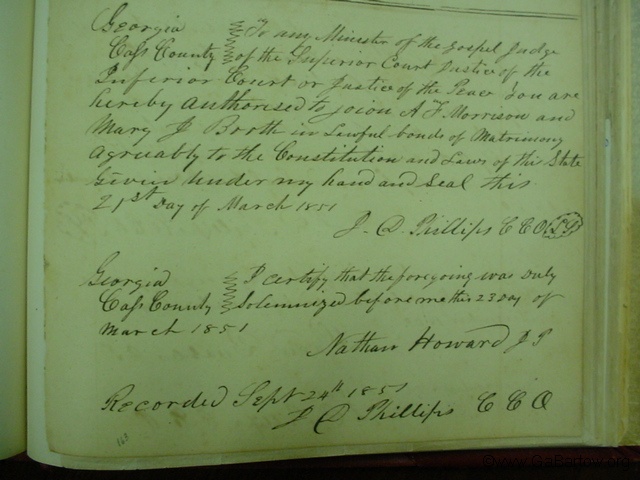 Georgia To any Minister of the Gospel Judge
Cass County of the Superior Court Justice of the
Inferior Court or Justice of the Peace You are
hereby authorised to joion A F Morrison and
Mary J in Lawful bonds of Matrimony
agruably to the Constitution and Laws of this State
Given under my hand and Seal this
21st Day of March 1851
J. D. Phillips C C O LS
Georgia I certify that the foregoing was Duly
Cass County Solemnized before me this 23 Day of
March 1851
Nathan Howard J P
Recorded Sept 24th 1851
J D Phillips C C O
163
©www.GaBartow.org